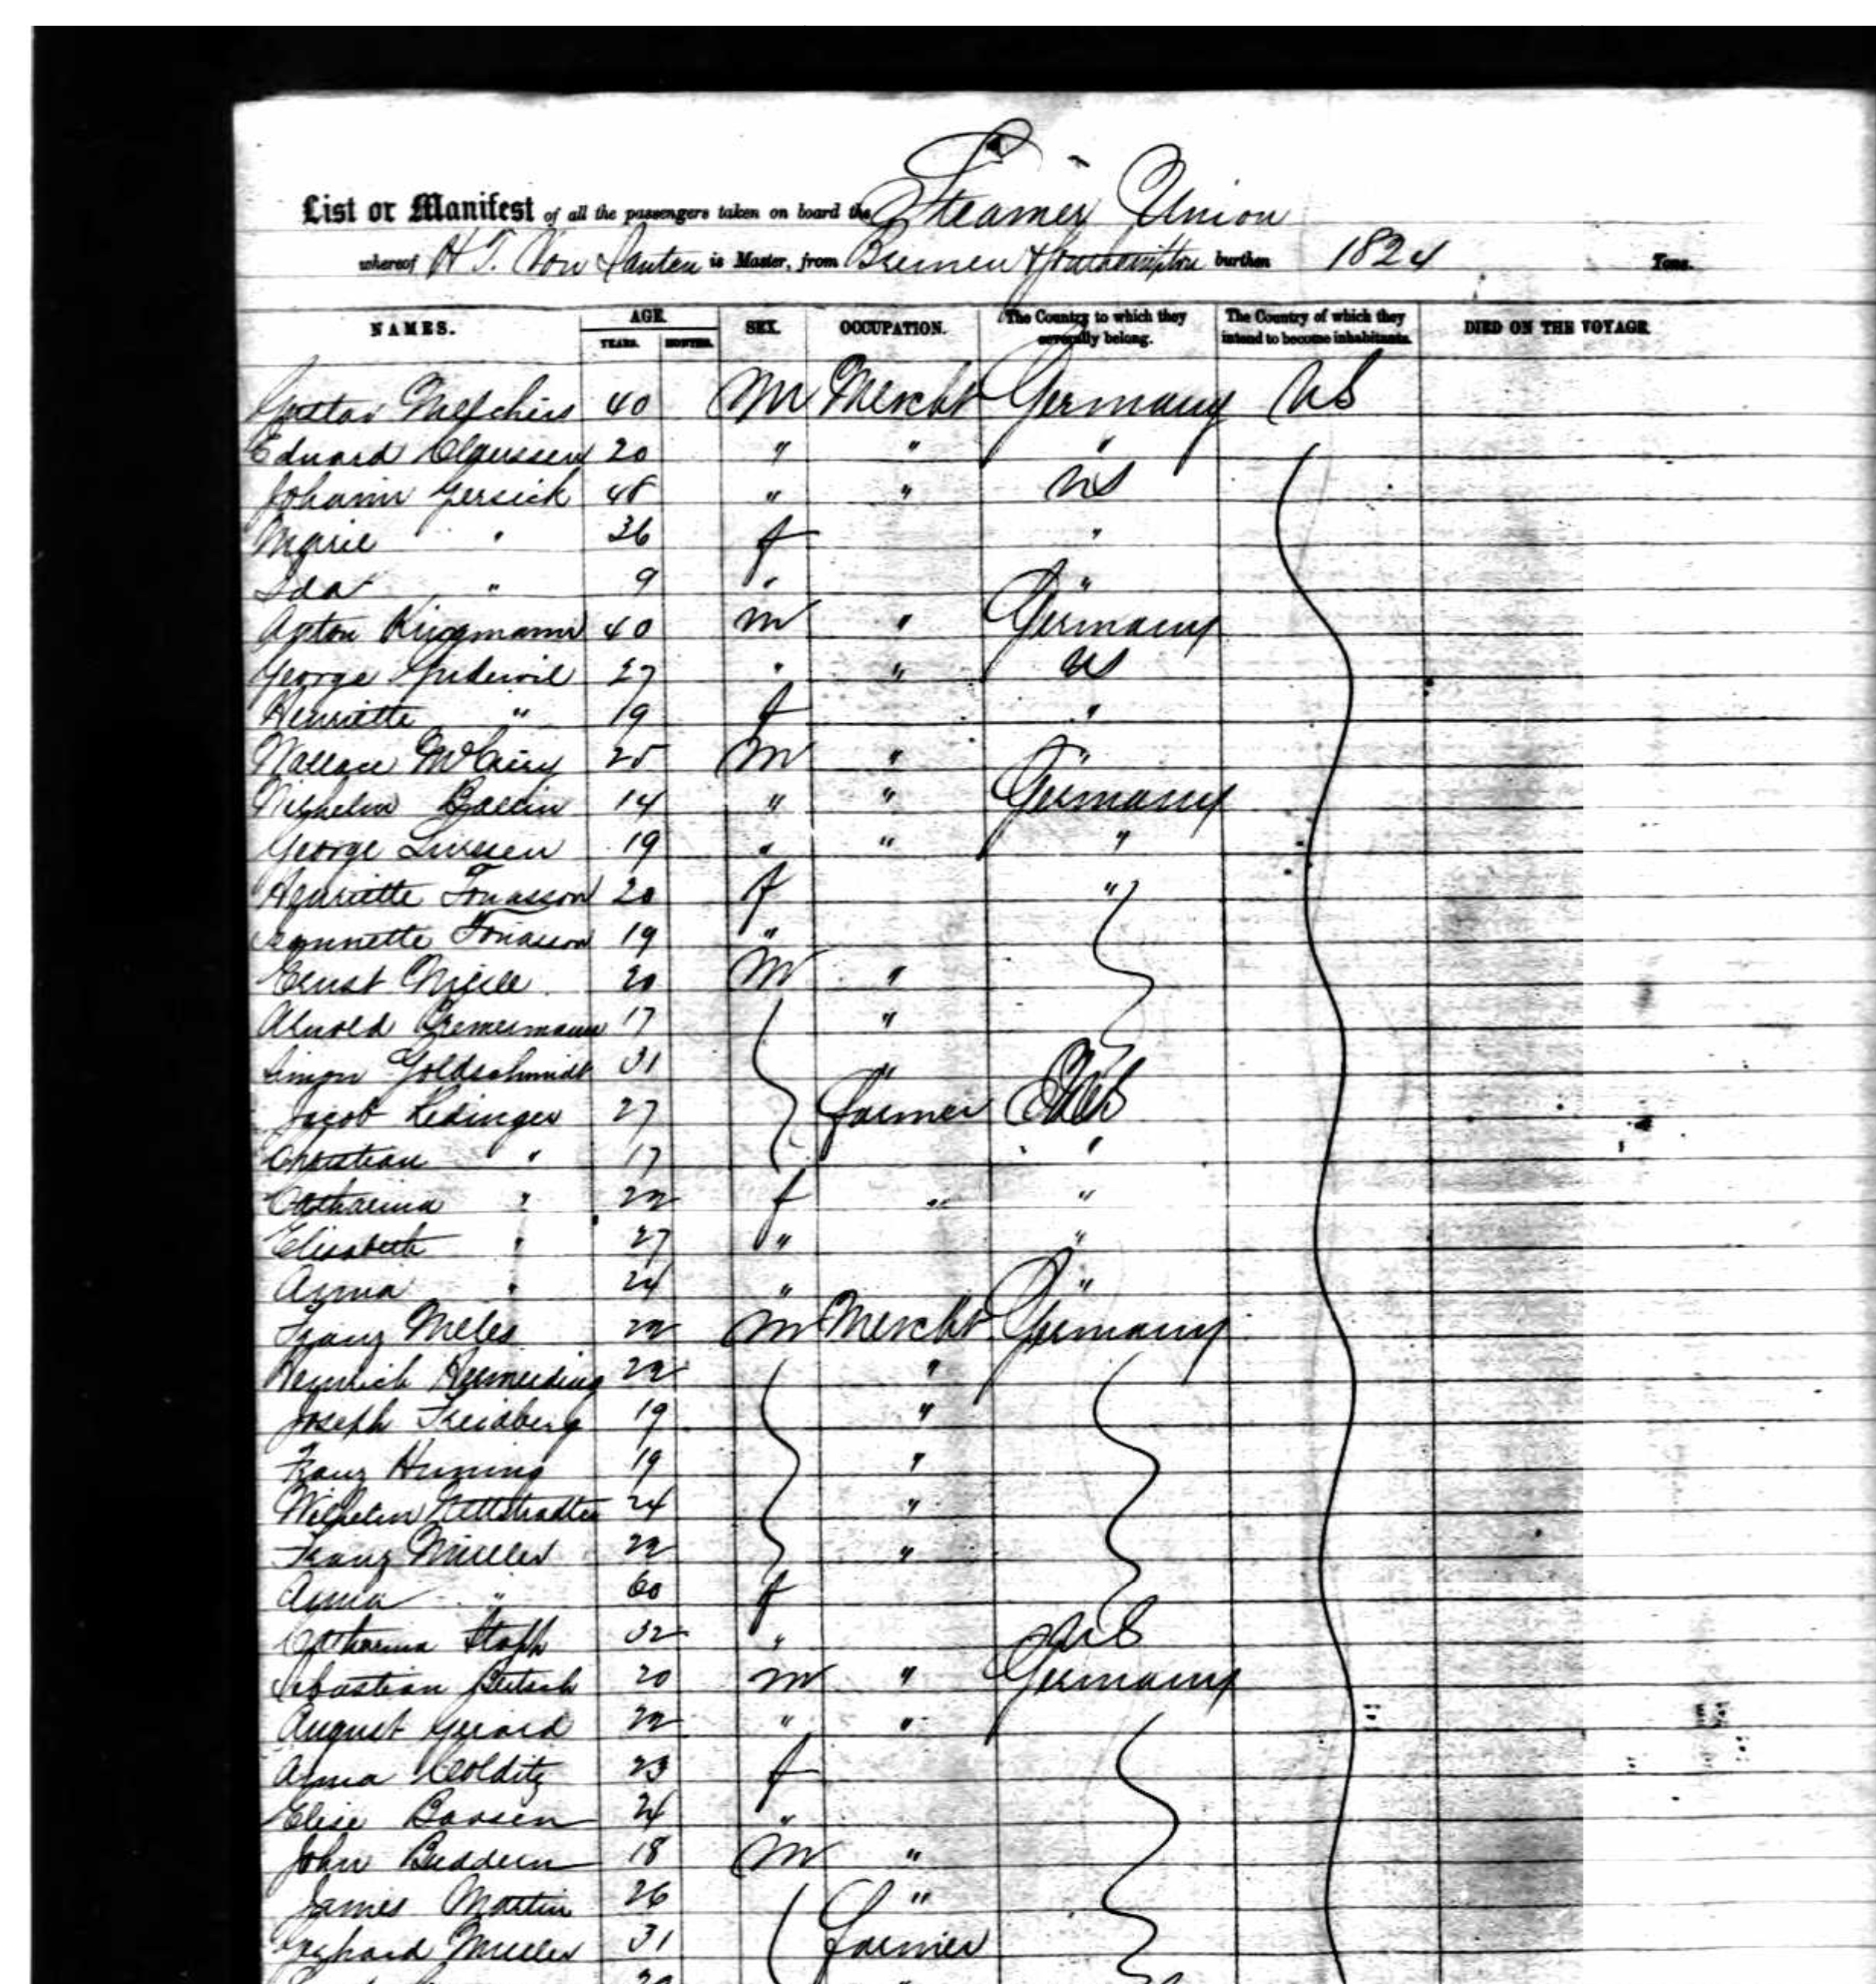 List or Manifest of all the passengers taken on board the Steamer Union
whereof H. T. Von Santen is Master, from Bremen & Southampton burthen 1824 Tons.
NAMES. AGE. SEX. OCCUPATION. The Country to which they severally belong. The Country of which they intend to become inhabitants. DIED ON THE VOYAGE
YEARS. MONTHS.
Gustav Melchers 40 M Mercht Germany US
Eduard Claussen 20 " " "
Johann Gersick 48 " " US
Marie " 36 f "
Ida " 9 " "
Anton 40 m " Germany
George 27 " " US
Henriette " 19 f "
Wallace 25 m " "
Wilhelm Ballin 14 " " Germany
George 19 " " "
Henriette Jonasson 20 f "
Jeannette Jonasson 19 "
Ernst 20 m "
Arnold 17 "
Simon Goldschmidt 31 "
Jacob Redinger 27 farmer
Christian " 17 "
Catharina " 22 f " "
Elisabeth " 27 " "
Anna " 24 " "
Franz Meles 22 m Mercht Germany
Heinrich 22 "
Joseph Freidberg 19 "
Franz 19 "
Wilhelm 24 "
Franz Mueller 22 "
Anna " 60 f
Catharina Stapp 32 " US
Sebastian 20 m " Germany
August Gerard 22 " "
Anna Colditz 23 f
Elise 24 "
John 18 m "
James Martin 26 "
Mueller 31 farmer